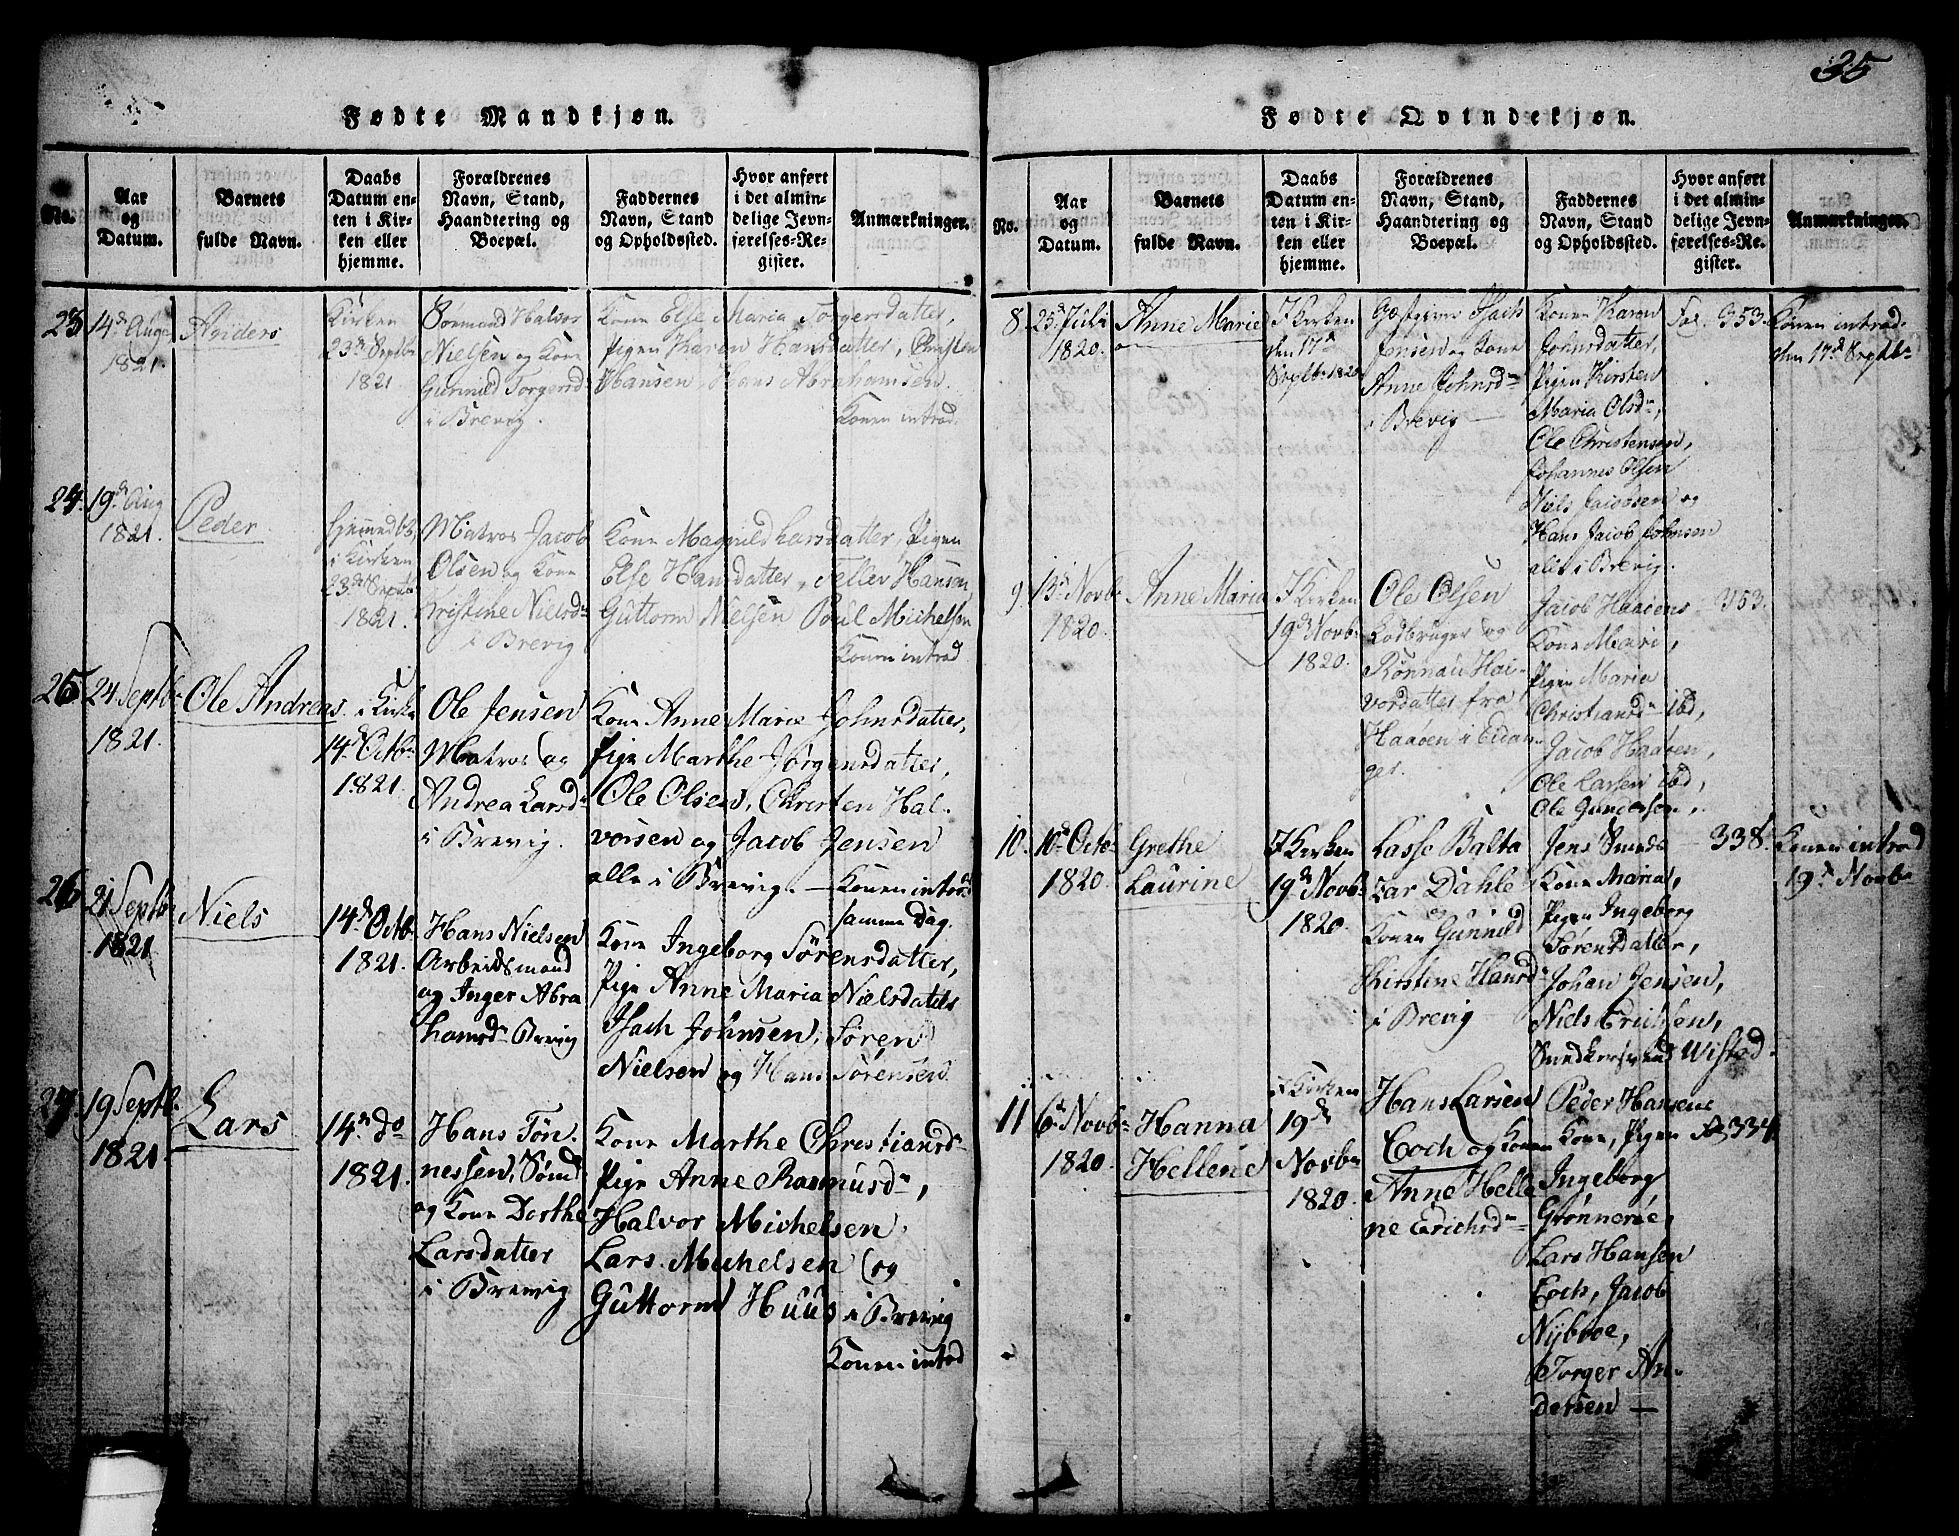 35
Fødte Mandkjøn.
No.
Aar
og
Datum.
Barnets
fulde Navn.
Daabs
Datum en-
ten i Kir-
ken eller
hjemme.
Forældrenes
Navn, Stand,
Haandtering og
Boepæl.
Faddernes
Navn, Stand
og Opholdssted.
Hvor anført
i det almin-
delige Jevn-
førelses-Re-
gister.
Anmærkninger.
23
14d Aug.
1821.
Anders
Kirken
23de Septbr
1821.
Sømand Halvor
Nielsen og Kone
Gunnild Torgersd
i Brevig.
Kone Else Maria Torgersdatter,
Pigen Karen Hansdatter, Christen
Hansen Hans Abrahamsen.
Konen introd.
24.
19de Aug
1821.
Peder
i Kirken
23de Septbr
1821.
Matros Jacob
Olsen og Kone
Kristine Nielsd
i Brevig
Kone Magnild Larsdatter, Pigen
Else Hansdatter, Tellev Hansen
Guttorm Nielsen Poul Michelsen
Konen introd
25
24 Septbr
1821.
Ole Andreas
i Kirke
14d Octbr
1821.
Ole Jensen
Matros og
Andrea Larsd
i Brevig.
Kone Anne Marie Johnsdatter,
Pige Marthe Jørgensdatter,
Ole Olsen, Christen Hal-
vorsen og Jacob Jensen
alle i Brevig. — Konen introd
samme Dag.
26
21 Septbr
1821
Niels
14d Octbr
1821.
Hans Nielsen
Arbeidsmand
og Inger Abra
hamsdr Brevig
Kone Ingeborg Sørensdatter,
Pige Anne Maria Nielsdatter
Isach Johnsen, Søren
Nielsen og Hans Sørensen
27
19 Septbr
1821.
Lars
14de do
1821.
Hans Tøn-
nessen, Sømd
og Kone Dorthe
Larsdatter
i Brevig
Kone Marthe Christiansdr
Pige Anne Rasmusdr,
Halvor Michelsen,
Lars Michelsen og
Guttorm Huus i Brevig
Konen introd
Fødte Qvindekjøn.
No.
Aar
og
Datum.
Barnets
fulde Navn.
Daabs
Datum en-
ten i Kir-
ken eller
hjemme.
Forældrenes
Navn, Stand,
Haandtering og
Boepæl.
Faddernes
Navn, Stand
og Opholdssted.
Hvor anført
i det almin-
delige Jevn-
førelses-Re-
gister.
Anmærkninger.
8.
25d Juli
1820.
Anne Marie
I Kirken
den 17de
Septbr 1820
Isach
Jensen og Kone
Anne Johnsdr
i Brevig
Konen Karen
Johnsdatter,
Pigen Kirsten
Maria Olsdr,
Ole Christensen,
Johannes Olsen
Niels Jacobsen og
Hans Jacob Johnsen
alle i Brevig.
Fol. 353.
Konen introd.
den 17de Septbr
9.
13de Novbr
1820.
Anne Maria
I Kirken
19de Novbr
1820.
Ole Olsen
Rodbruger og
Rønnau Hal-
vorsdatter fra
Haaøen i Eidan-
ger.
Jacob Haaøens
Kone Mari,
Pigen Maria
Christiansdr ibd,
Jacob Haaøen,
Ole Larsen ibd,
Ole Gundersen.
353.
10.
10de Octbr
1820.
Grethe
Laurine
I Kirken
19de Novbr
1820.
Lasse Balta
zar Dahle
og
Konen Gunnild
Kirstine Hansdr
i Brevig
Jens Smeds
Kone Maria,
Pigen Ingeborg
Sørensdatter,
Johan Jensen,
Niels Erichsen,
Snedkersvend Wistad.
338.
Konen introd
19de Novbr
11
6te Novbr
1820.
Hanna
Hellene
I Kirken
19de
Novbr
1820.
Hans Larsen
Coch og Konen
Anne Helle
ne Erichsdr
Peder Hansens
Kone, Pigen
Ingeborg
Grønnerøe,
Lars Hansen
Coch, Jacob
Nijbroe,
Torger An-
dersen —
334